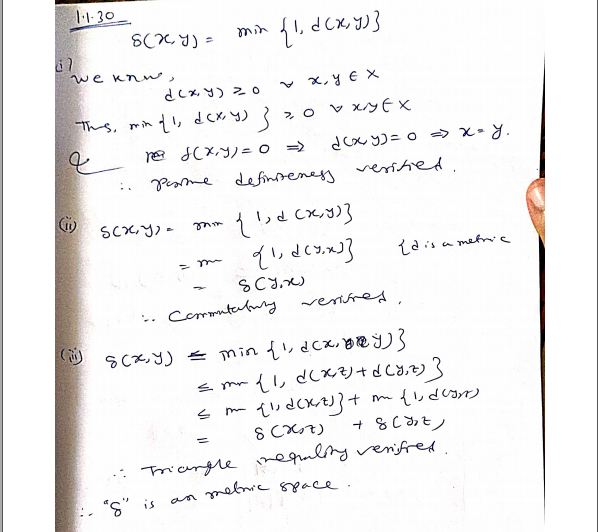 1.1.30
δ(x,y) = min {1, d(x,y)}
(i) We know,
d(x,y) ≥ 0 ∀ x,y ∈ X
Thus, min {1, d(x,y)} ≥ 0 ∀ x,y ∈ X
& δ(x,y)=0 ⇒ d(x,y)=0 ⇒ x=y.
∴ Positive definiteness verified.
(ii) δ(x,y) = min {1, d(x,y)}
= min {1, d(y,x)} {d is a metric
= δ(y,x)
∴ Commutativity verified.
(iii) δ(x,y) = min {1, d(x,y)}
≤ min {1, d(x,z)+d(y,z)}
≤ min {1, d(x,z)} + min {1, d(y,z)}
= δ(x,z) + δ(y,z)
∴ Triangle inequality verified.
∴ "δ" is an metric space.